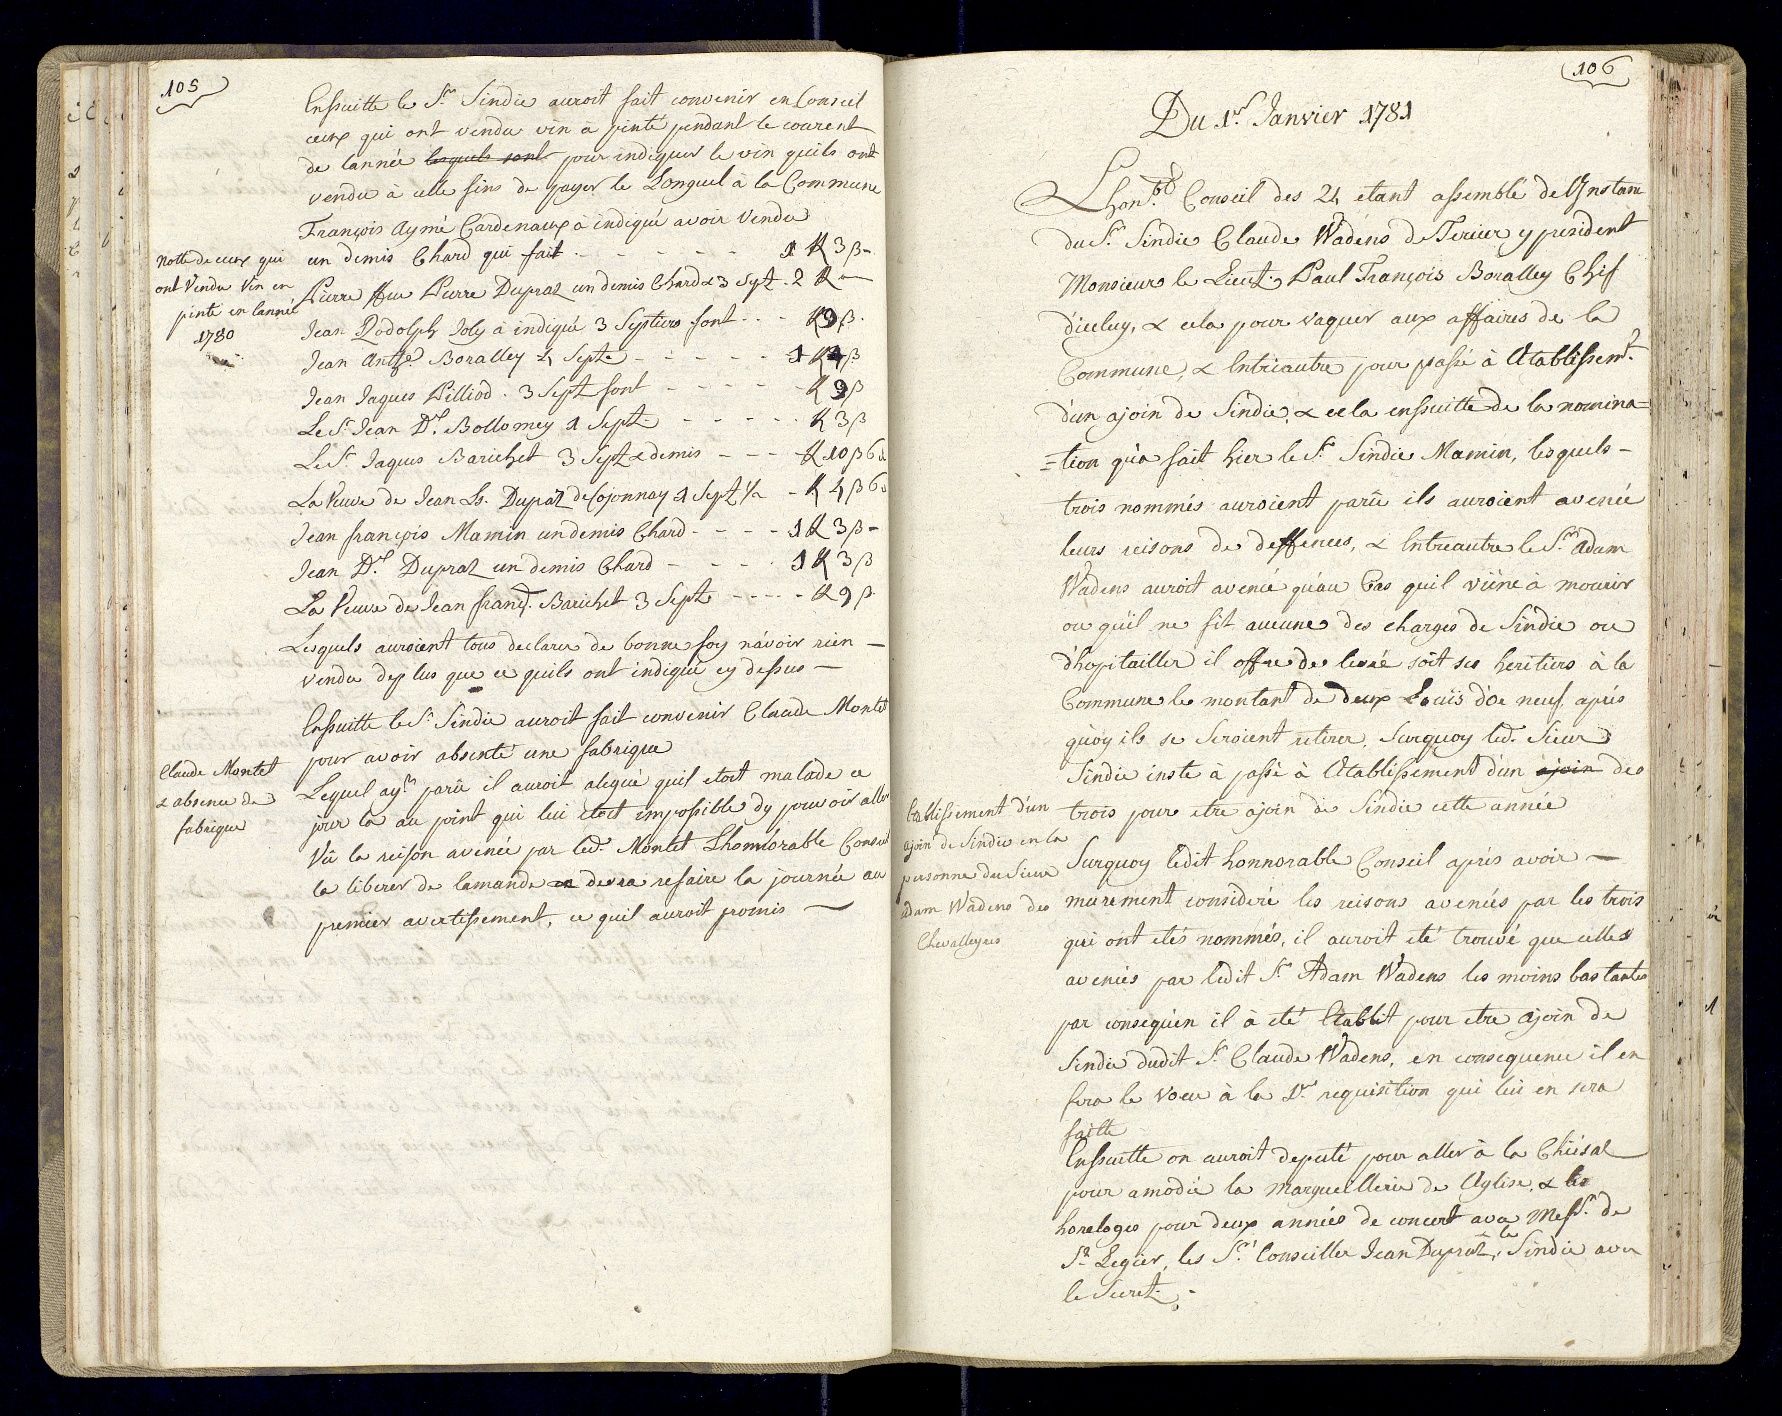 105
Ensuitte le Sr. Sindic auroit fait convenir en Conseil
ceux qui ont vendu vin à pinte pendant le courent
de lannée lesquels sont pour indiquer le vin quils ont
vendu à celle fins de payer le Longuel à la Commune
François Aymé Cardenaux à indiqué avoir vendu
notte de ceux qui
ont Vendu Vin en
pinte en lannée
1780
un demis Chard qui fait - - - - - 1 K 3 β -
Pierre ffeu Pierre Dupraz un demis Chard & 3 Sept - 2 K -
Jean Rodolph Joly à indiqué 3 Septiers font - - - K 9 β -
Jean Anthe. Boralley 4 Sept - - - - - 1 K 4 β
Jean Jaques Pilliod . 3 Sept font - - - - K 9 β
Le Sr. Jean Dl. Bollomey 1 Sept - - - - K 3 β
Le Sr. Jaques Barichet 3 Sept & demis - - - K 10 β 6 d
La Veuve de Jean Ls. Dupraz de Cojonnay 1 Sept 1/2 - K 4 β 6 d
Jean françois Mamin un demis Chard - - - - 1 K 3 β -
Jean Dl. Dupraz un demis Chard - - - - 1 K 3 β
La Veuve de Jean franç. Barichet 3 Sept - - - - K 9 β
Lesquels auroient tous declarer de bonne foy n'avoir rien -
vendu dep lus que ce quils ont indiqué cy dessus -
Ensuitte le Sr. Sindic auroit fait convenir Claude Montet
pour avoir absenté une fabrique
Claude Montet
& absence de
fabrique
Lequel ayt. parû il auroit alegué quil etoit malade ce
jour la au point qui lui étoit impossible dy pouvoir aller
Vû la reison avenée par led. Montet Lhonnorable Conseil
la liberer de lamande devra refaire la journée au
premier avertissement, ce quil auroit promis -
106
Du 1r. Janvier 1781
Lhon.ble Conseil des 24 etant assemblé de lJnstam
du Sr. Sindic Claude Wadens de Tercier y president
Monsieur le Lieut. Paul François Boralley Chef
d'iceluy, & cela pour vaquer aux affaires de la
Commune, & Entriautre pour passé à Etablissemt.
d'un ajoin de Sindic, & cela ensuitte de la nomina=
=tion qu'a fait hier le Sr. Sindic Mamin, lesquels -
trois nommés auroient parû ils auroient avenée
leurs reisons de deffences, & Entreautre le Sr. Adam
Wadens auroit avencé qu'au Cas quil viène à mourir
ou qu'il ne fit aucunes des charges de Sindic ou
d'hopitailler il offre de livré soit ses heritiers à la
Commune le montant de deux Loüis d'or neuf, après
quòy ils se Seroient retirer, Surquoy led. Sieur
Sindic inste à passé à Etablissement d'un ajoin des
trois pour etre ajoin de Sindic cette année
Etablissement d'un
ajoin de Sindic en la
personne du Sieur
Adam Wadens des
Chevalleyres
Surquoy ledit honnorable Conseil après avoir -
murement consideré les reisons avenées par les trois
qui ont etés nommés, il auroit eté trouvé que celles
avenées par ledit Sr. Adam Wadens les moins bastantes
par consequen il à eté Etablit pour etre ajoin de
Sindic dudit Sr. Claude Wadens, en consequence il en
fera le voeu à la 1re. requisition qui lui en sera
faitte
Ensuitte on auroit deputé pour aller à la Chiésaz
pour amodié la Marguellerie de Eglise, & les
horologes pour deux années de concert avec Messrs. de
St. Legier, les Srs. Conseiller Jean Dupraz, le Sindic avec
le Secret.